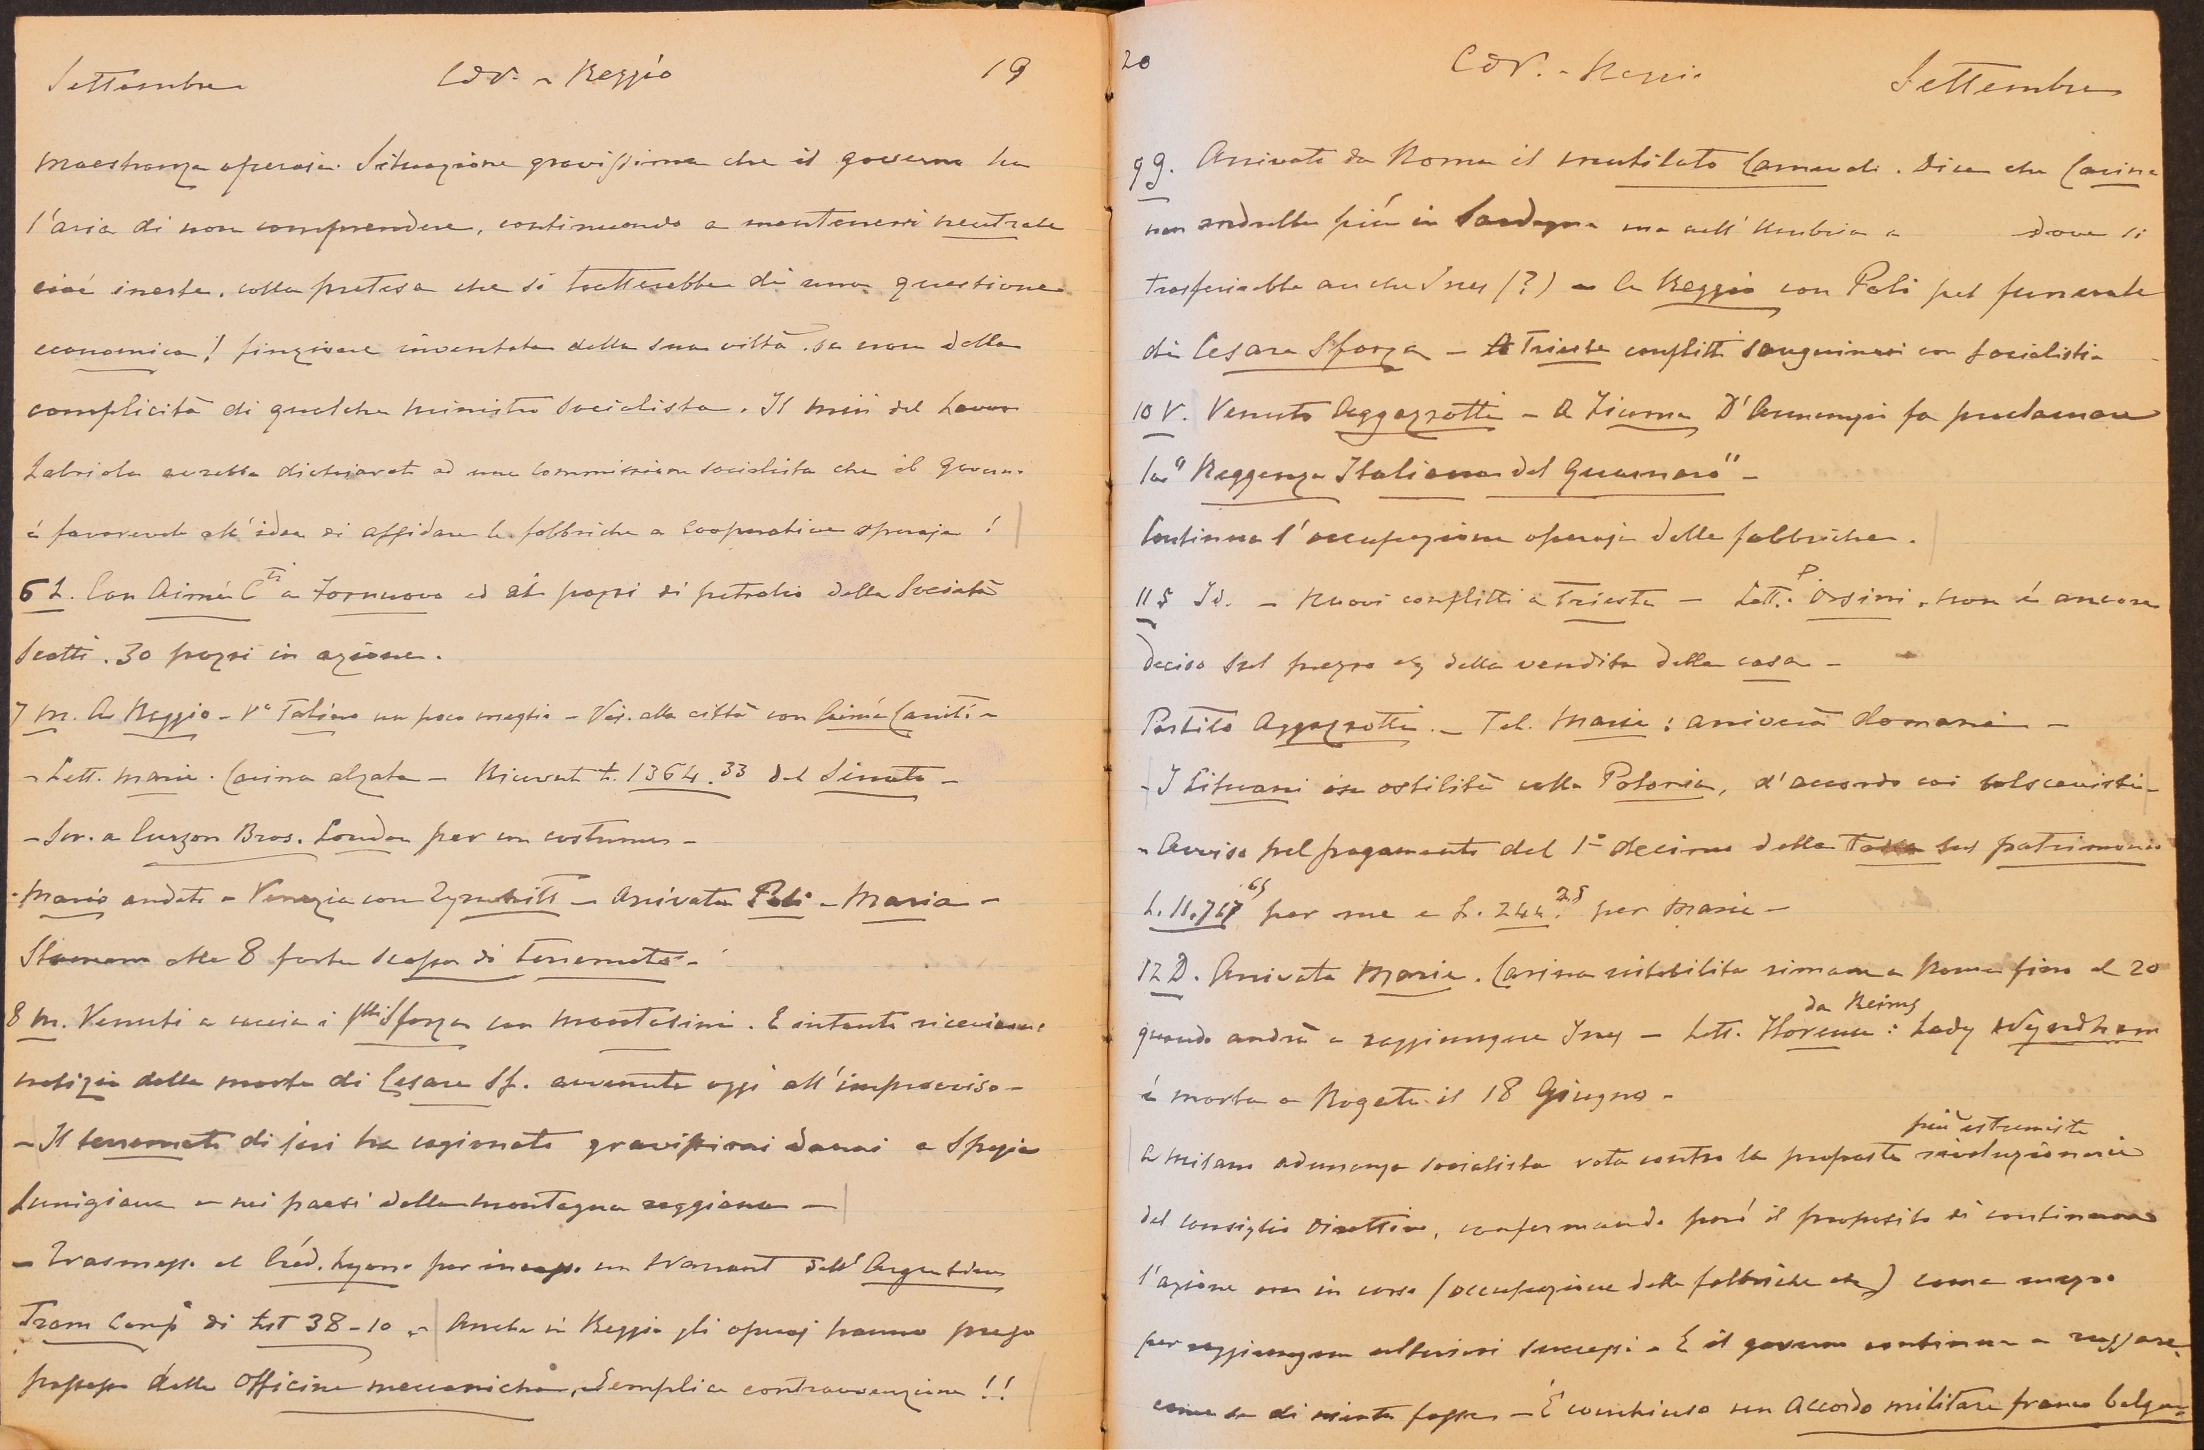 Settembre CdV. - Reggio 19
maestranza operaja. Situazione gravissima che il governo ha
l'aria di non comprendere, continuando a mantenersi neutrale
cioè inerte, colla pretesa che si tratterebbe di una questione
economica! finzione inventata dalla sua viltà se non dalla
complicità di qualche ministro socialista. Il min del Lavoro
Labriola avrebbe dichiarato ad una commissione socialista che il governo
è favorevole all'idea di affidare le fabbriche a cooperative operaje!
6 L. Con Aimé C.ti a Fornuovo ed ai pozzi di petrolio della Società
Scotti. 30 pozzi in azione.
7 M. A Reggio - Va Taliano un poco meglio - Vis. alla città con Aimé
- Lett. Marie. Carina alzata - Ricevute L. 1364.33 del Senato -
- Scr. a Curzon Bros. London per un costume -
- Mario andato a Venezia con - Arrivata Poli - Maria -
Stamane alle 8 forte scossa di terremoto -
8 M. Venuti a caccia i f.lli Sforza con Montesini. E intanto riceviamo
notizia della morte di Cesare Sf. avvenuta oggi all'improvviso -
- Il terremoto di jeri ha cagionato gravissimi danni a Spezia
Lunigiana e nei paesi della montagna reggiana -
- Trasmesso al Créd. Lyon. per incasso un warrant dell'Argentine
Tram Comp. di Lst 38-10 - Anche in Reggio gli operaj hanno preso
possesso delle officine meccaniche. Semplice contravvenzione!!
20 CdV. - Reggio Settembre
9 G. Arrivato da Roma il mutilato Dice che Carina
non andrebbe più in Sardegna ma nell'Umbria a dove si
trasferirebbe anche Ines (?) - A Reggio con Poli pel funerale
di Cesare Sforza - A Trieste conflitti sanguinosi con socialisti -
10 V. Venuto Aggazzotti - A Fiume D'Annunzio fa proclamare
la "Reggenza Italiana del Quarnaro" -
Continua l'occupazione operaja delle fabbriche.
11 S Id. - Nuovi conflitti a Trieste - Lett. P. Orsini, non è ancora
deciso sul prezzo della vendita della casa -
Partito Aggazzotti. - Tel. Marie: arriverà domani -
- I Lituani in ostilità colla Polonia, d'accordo coi bolscevisti -
- Avviso pel pagamento del 1° decimo della Tassa sul patrimonio
L. 11.767.65 per me e L. 244.25 per Marie -
12 D. Arrivata Marie. Carina ristabilita rimane a Roma fino al 20
quando andrà a raggiungere Ines - Lett. Florence da Reims: Lady Wyndham
è morta a Bogota il 18 Giugno -
A Milano adunanza socialista vota contro la proposta più estremista rivoluzionaria
del consiglio Direttivo, confermando però il proposito di continuare
l'azione ora in corso (occupazione delle fabbriche etc) come mezzo
per raggiungere ulteriori successi - E il governo continua a russare,
come se di niente fosse - È conchiuso un Accordo militare franco belga -